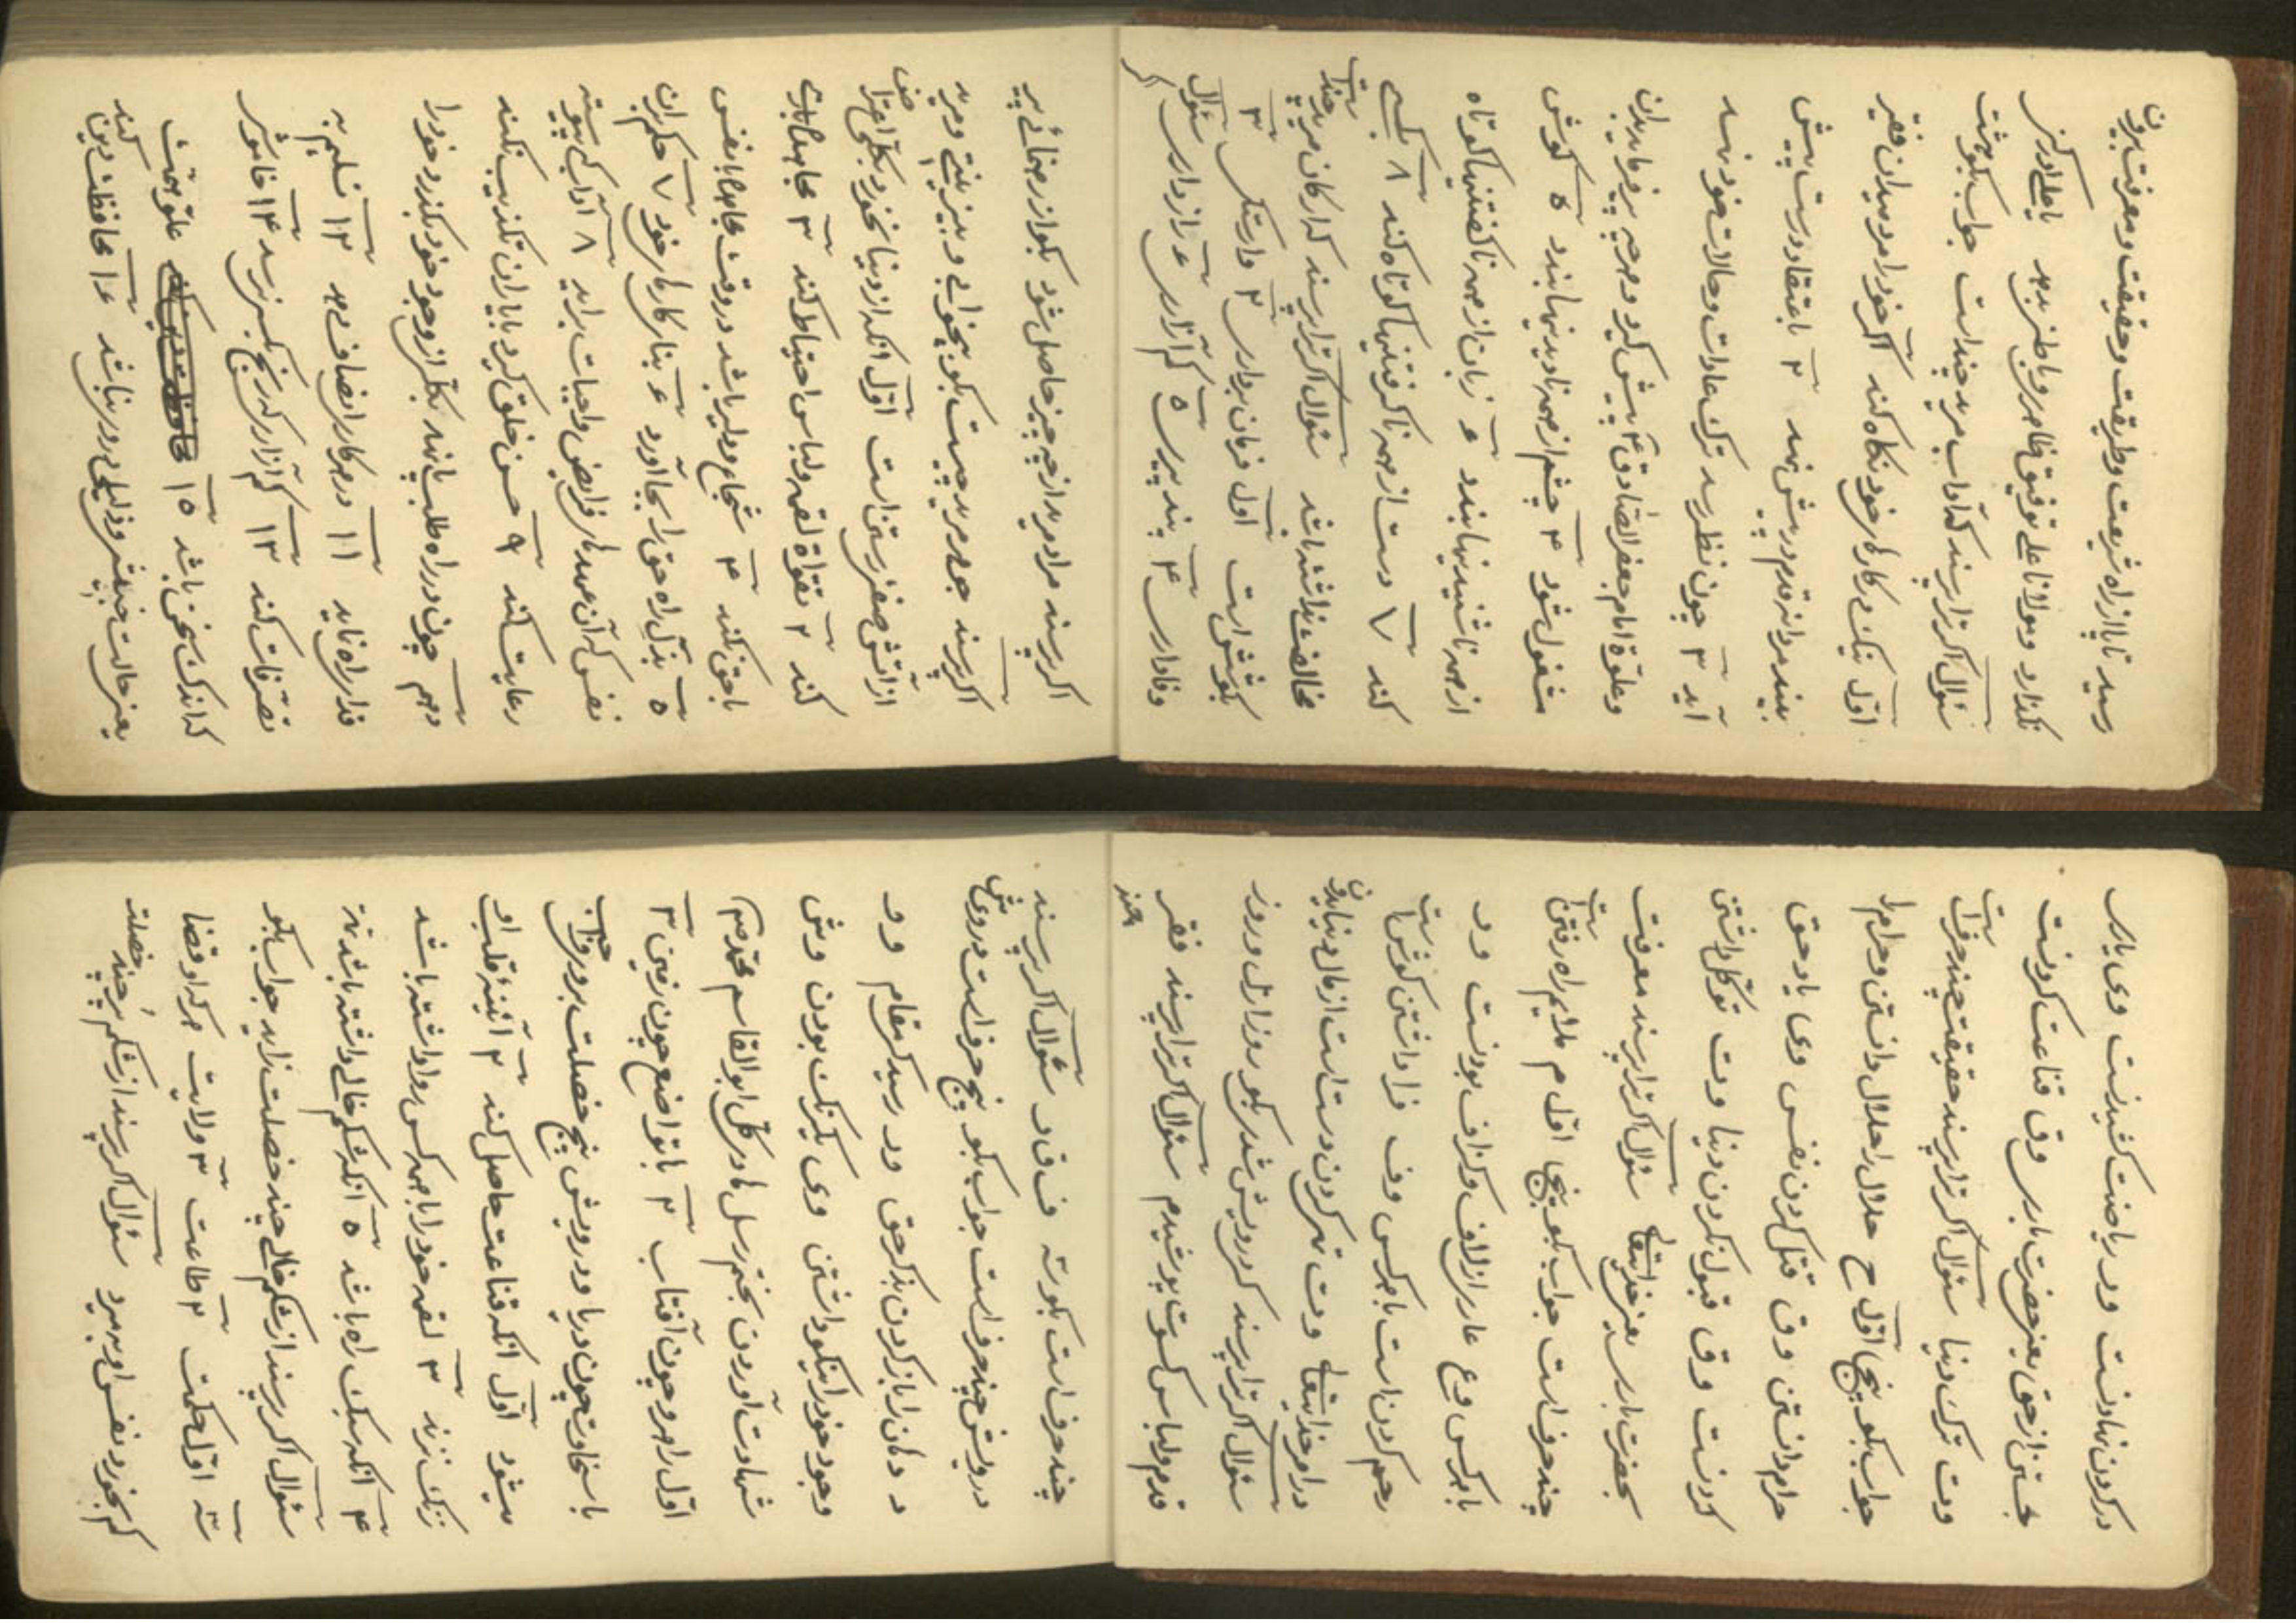 رسید تا پا از راه شریعت و طریقت و حقیقت و معرفت بیرون
نگذارد و مولانا علی توفیق ظاهر و باطن بدهد یا علی ادرکنی
سئوال اگر ترا پرسند که آداب مرید چند است جواب بگو هشت
اول نیک در کارهای خود نگاه کند اگر خود را مرد میدان فقیر
بیند مردانه قدم در پیش نهد ۲ باعتقاد درست پیش
آید ۳ چون نظر رسد ترک عادات و حالات خود نهد
و امام جعفر الصادق پیش گیرد و هر چه پیر فرماید بدان
مشغول شود ۴ چشم از همه نادیدنیها ببندد ۵ گوش
از همه ناشنیدنیها ببندد ۶ زبان از همه ناگفتنیها کوتاه
کند ۷ دست از همه ناگرفتنیها کوتاه کند ۸ بکسی
مخالفت نداشته باشد سئوال اگر ترا پرسند که ارکان مرید چند است
بگو شش است اول فرمان برداری ۲ راستکی ۳
وفاداری ۴ پند پیری ۵ کم آزاری ۶ رازداری سئوال اگر
اگر پرسند مراد مرید از چه چیز حاصل شود بگو از رهنمائی پیر
اگر پرسند جوهر مرید چیست بگو بیخوابی و بیزینتی و مرید
از آتش است اول آنکه از دنیا نخورد بکلی اعراض
کند ۲ تقواة لقمه و لباس احتیاط کند ۳
با حق کند ۴ شجاع و دلیر باشد در وقت مجاهدة با نفس
۵ بذل راه حق را بجا آورد ۶ بنای کارهای خود ۷ حکم بران
نفس که آن عهدهای فرایض واجبات برآید ۸ آداب کی پیوسته
رعایت کند ۹ حسن خلق گیرد با یاران تکذیب نکند
دهم چون در راه طلب پا نهد بکلی از وجود خود بگذرد خود را
فدای راه نماید ۱۱ در هر کار انصاف دهد ۱۲ تسلیم به
تصرفات کند ۱۳ کم آزار که رنج بکس نرسد ۱۴ خاموش
که اندک سخن باشد ۱۵ علو همت
یعنی حالت و ذلیلی دور باشد ۱۶ محافظت دین کند
در کردن نهادنست و ر ریاضت کشیدنست و ی یاری
جستن از حق یعنی حضرت باری و ق قناعت کردنست
و ت ترک دنیا سئوال اگر ترا پرسند حقیقت چند حرف است
جواب بگو پنج اول ح حلال را حلال دانستن و حرام را
حرام دانستن و ق قتل کردن نفس و ی یاد حق
کردنست و ق قبول نکردن دنیا و ت توکل داشتن
بحضرت باری یعنی خدایتعالی سئوال اگر ترا پرسند معرفت
چند حرف است جواب بگو پنج اول م ملایم راه رفتن است
با هر کس و ع عاری از لاف و گزاف بودنست و ر
رحم کردن است با هر کس و ف فرا داشتن گوش است
در امر خدایتعالی و ت تهی کردن دست است از مال دنیای دون
سئوال اگر ترا پرسند که درویش شدی بگو روز ازل و روز
قدم و لباس کسوت پوشیدم سئوال اگر ترا پرسند فقر چند
چند حرف است بگو سه ف ق ر سئوال اگر پرسند
درویش چند حرف است جواب بگو پنج حرف است د ر و ی ش
د دکان را باز کردن بذکر حق و ر رسید که مقام و و
وجود خود را نیکو داشتن و ی یکرنگ بودن و ش
شهادت آوردن بختم رسل هادی کل ابوالقاسم محمد
اول راهرو چون آفتاب ۲ با تواضع چون زمین ۳
با سخاوت چون دریا و درویش پنج خصلت بر او واجب
میشود اول آنکه قناعت حاصل کند ۲ آئینه قلب او
زنگ نزند ۳ لقمه خود را با همه کس روا داشته باشد
۴ آنکه سبک راه باشد ۵ آنکه شکم خالی داشته باشد
سئوال اگر پرسند از شکم خالی چند خصلت زاید جواب بگو
سه اول حکمت ۲ طاعت ۳ ولایت هر که او قضا
کم بخورد نفس او بمیرد سئوال اگر پرسند از شکم پر چند خصلت